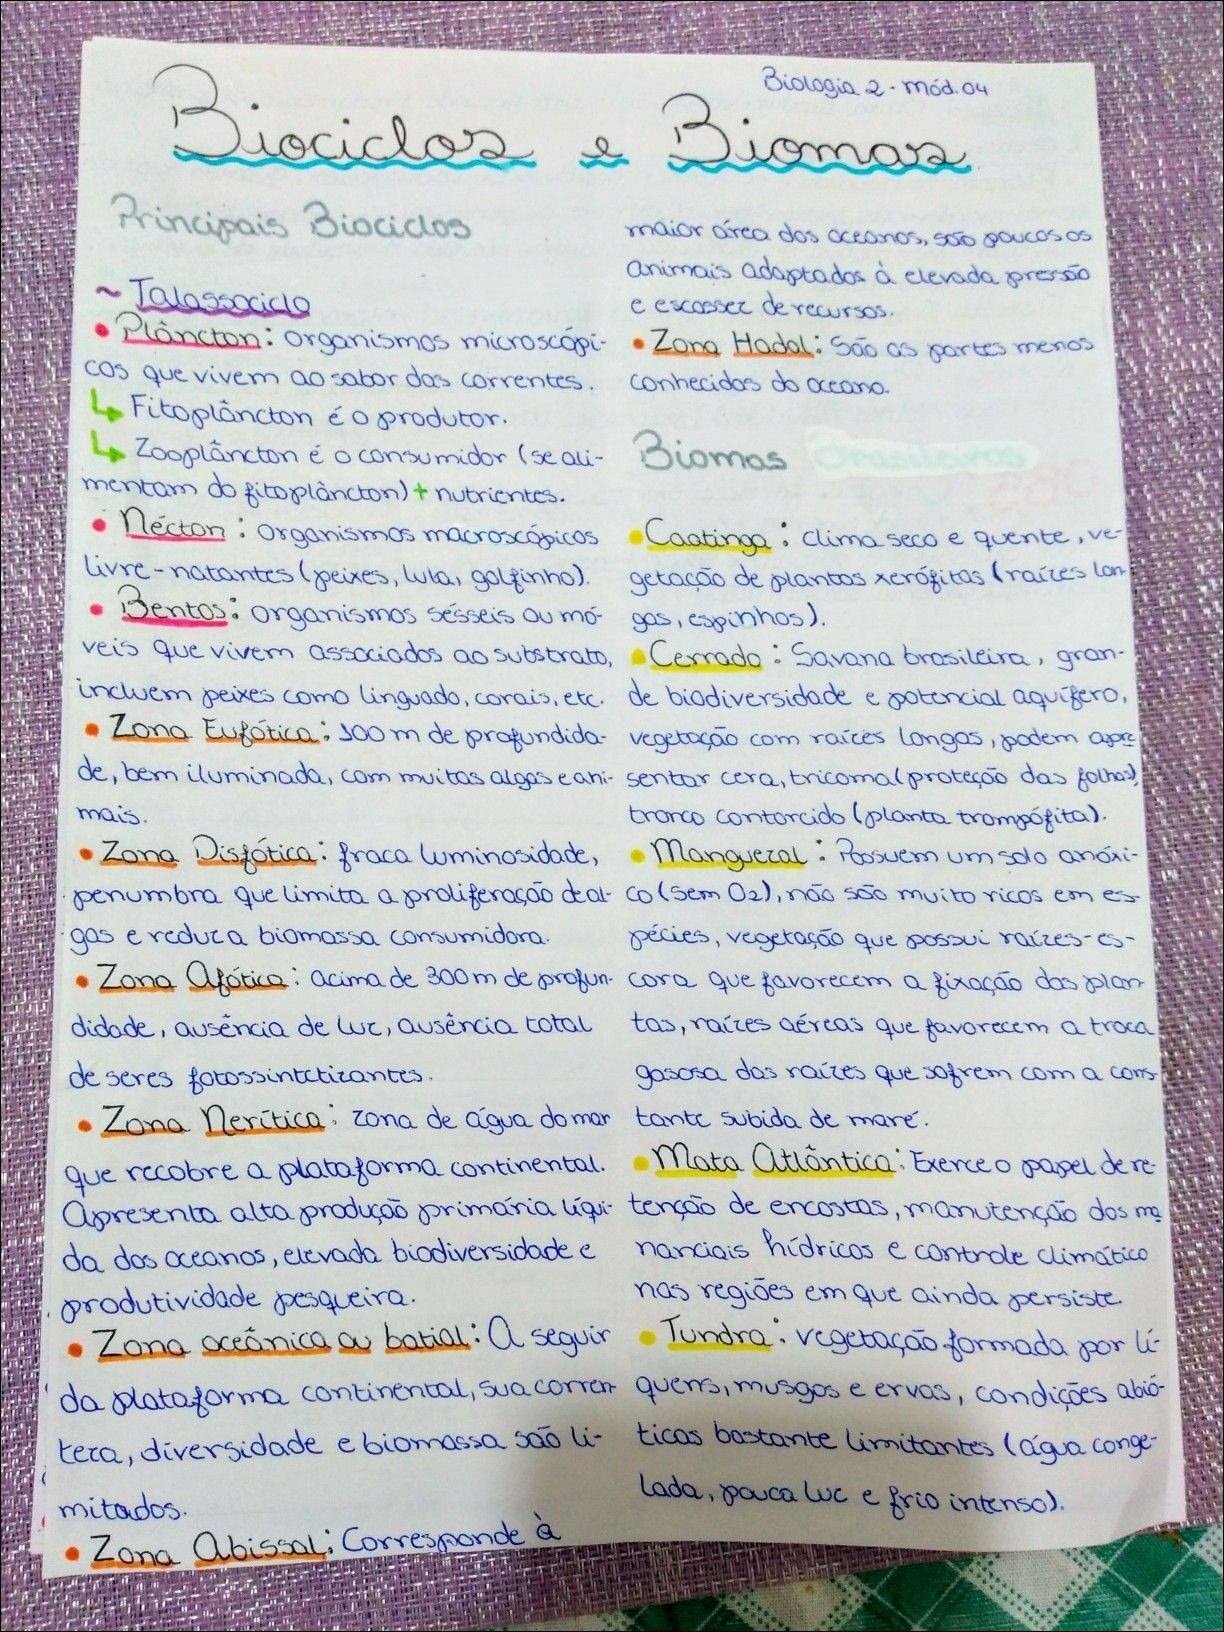 Biologia 2 - mód. 04
Biociclos e Biomas
Principais Biociclos
~ Talassociclo
• Plâncton: organismos microscópi-
cos que vivem ao sabor das correntes.
↳ Fitoplâncton é o produtor.
↳ Zooplâncton é o consumidor (se ali-
mentam do fitoplâncton) + nutrientes.
• Nécton: organismos macroscópicos
livre-natantes (peixes, lula, golfinho).
• Bentos: organismos sésseis ou mó-
veis que vivem associados ao substrato,
incluem peixes como linguado, corais, etc.
• Zona Eufótica: 100 m de profundida-
de, bem iluminada, com muitas algas e ani-
mais.
• Zona Disfótica: fraca luminosidade,
penumbra que limita a proliferação de al-
gas e reduz a biomassa consumidora.
• Zona Afótica: acima de 300 m de profun-
didade, ausência de luz, ausência total
de seres fotossintetizantes.
• Zona Nerítica: zona de água do mar
que recobre a plataforma continental.
Apresenta alta produção primária líqui-
da dos oceanos, elevada biodiversidade e
produtividade pesqueira.
• Zona oceânica ou batial: A seguir
da plataforma continental, sua corren
teza, diversidade e biomassa são li-
mitados.
• Zona Abissal: Corresponde à
maior área dos oceanos, são poucos os
animais adaptados à elevada pressão
e escassez de recursos.
• Zona Hadal: São as partes menos
conhecidas do oceano.
Biomas Brasileiros
• Caatinga: clima seco e quente, ve-
getação de plantas xerófitas (raízes lon
gas, espinhos).
• Cerrado: Savana brasileira, gran-
de biodiversidade e potencial aquífero,
vegetação com raízes longas, podem apre
sentar cera, tricoma (proteção das folhas),
tronco contorcido (planta trompófita).
• Manguezal: Possuem um solo anóxi-
co (sem O2), não são muito ricos em es-
pécies, vegetação que possui raízes-es-
cora que favorecem a fixação das plan-
tas, raízes aéreas que favorecem a troca
gasosa das raízes que sofrem com a cons-
tante subida de maré.
• Mata Atlântica: Exerce o papel de re-
tenção de encostas, manutenção dos ma
nanciais hídricos e controle climático
nas regiões em que ainda persiste.
• Tundra: vegetação formada por lí-
quens, musgos e ervas, condições abió-
ticas bastante limitantes (água conge-
lada, pouca luz e frio intenso).